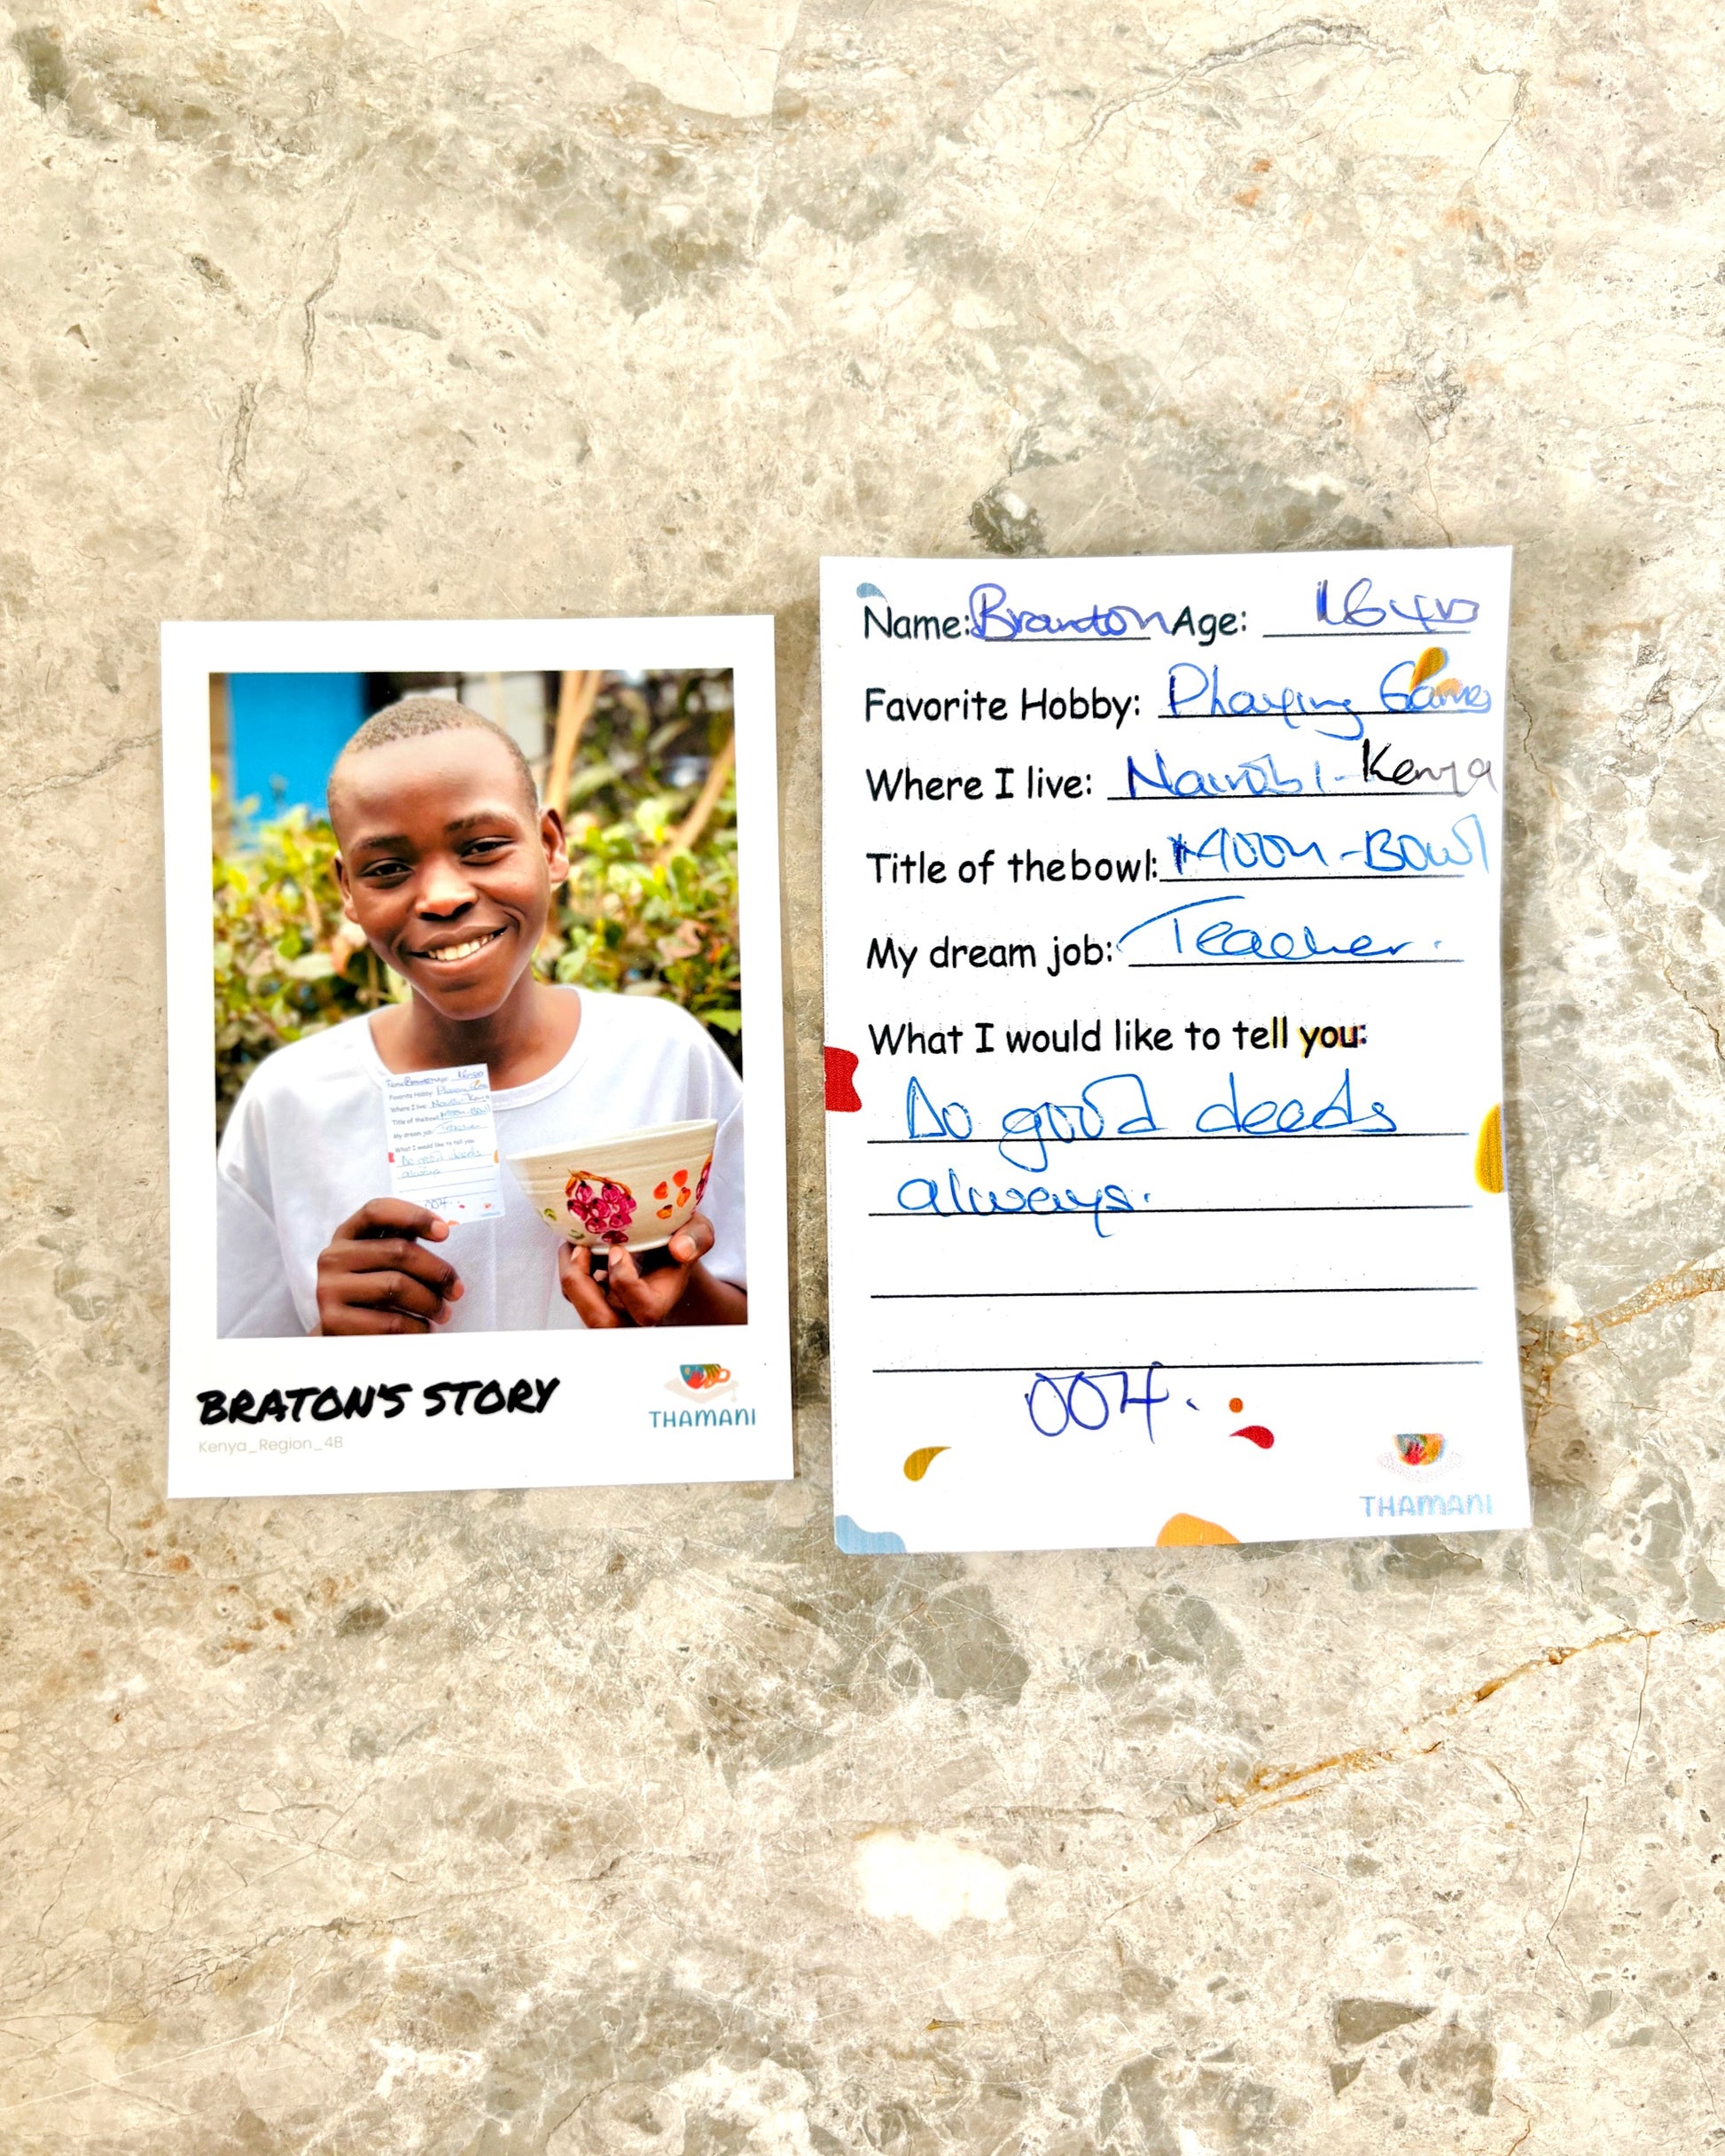 BRATON'S STORY
Kenya_Region_4B
THAMANI
Name: Branton Age: 16 yrs
Favorite Hobby: Playing Games
Where I live: Nairobi-Kenya
Title of the bowl: Moon-Bowl
My dream job: Teacher.
What I would like to tell you:
Do good deeds
always.
004.
THAMANI